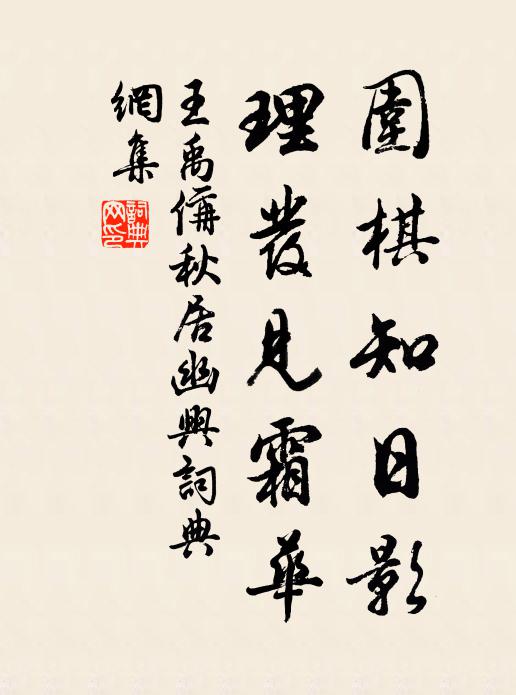 圍棋知日影
理發見霜華
王禹偁秋居幽興詞典
網集
詞典
网印